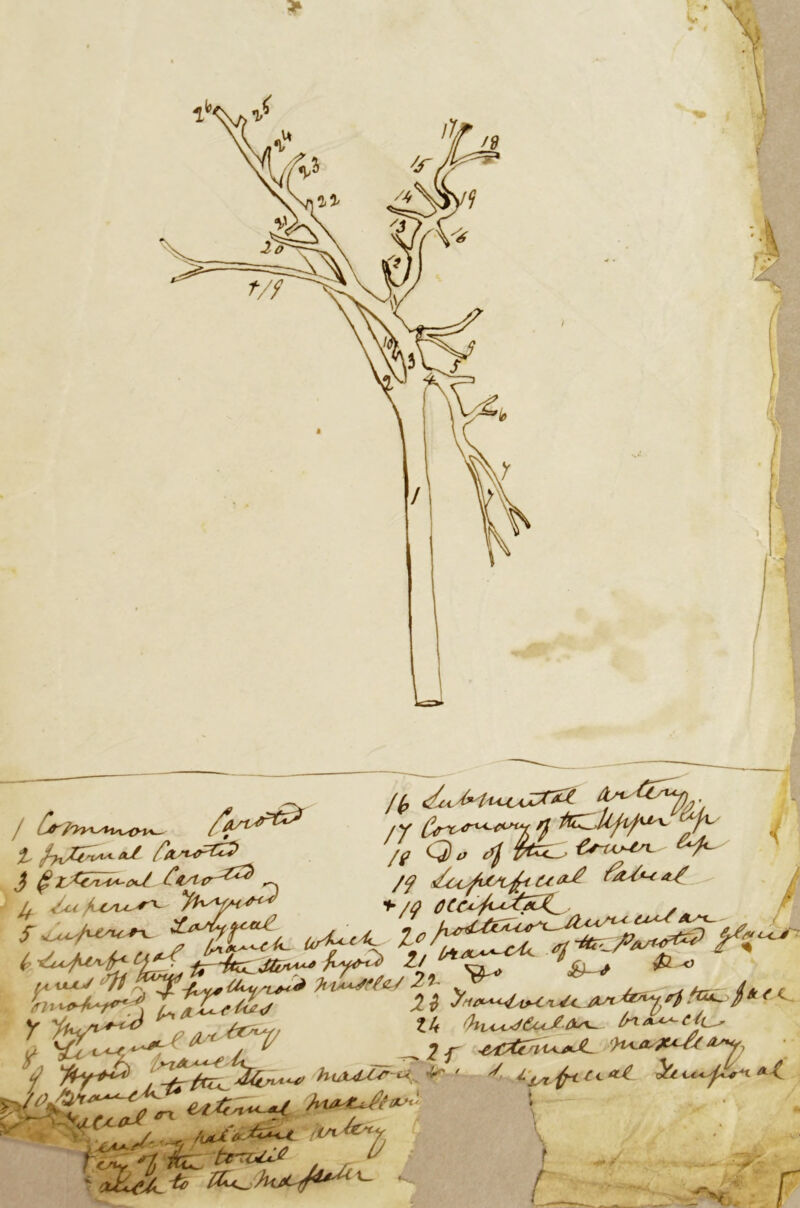 26
25
24
23
22
21
20
+19
17
18
15
14
19
13
16
12
8
9
10
3
5
2
4
6
7
1
1 Common Carotid
2 Internal Carotid
3 External Carotid
4 Superior Thyroid
5 Superior Laryngeal
6 Superficial branch which
gives off twigs to the Sterno hyoid
omohyoid & hyothyroid muscles
7 Thyroid branches
8 Lingual artery
9 Hyoid branch
10 Branch to the Sterno Mastoid
Facial or external Maxillar
palatine Artery
of the tonsil
to the Masseter
16 Submental artery.
17 Coronary of the Upper lip
18 Do of the Lower lip
19 Superficial labial
+19 Occipital
20 posterior auricular
21 branch of the Parotid gland
22 Do Do Do
23 Transverse artery of the face
24 Muscular branch
25 external maxillary
Temporal